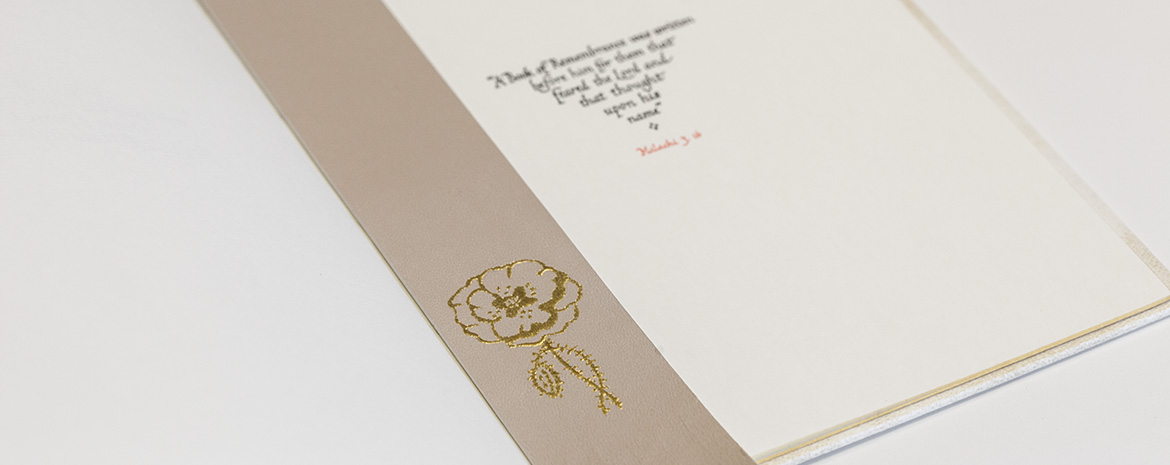 "A Book of Remembrance was written
before him for them that
feared the Lord and
that thought
upon his
name"
Malachi 3. 16